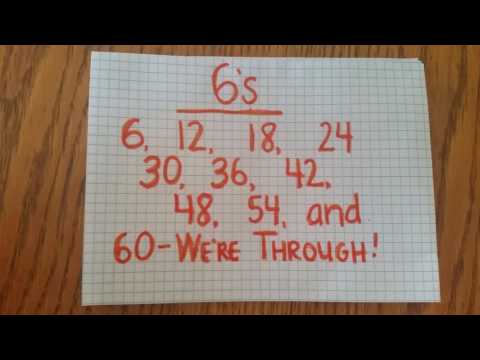 6's
6, 12, 18, 24
30, 36, 42,
48, 54, and
60-WE'RE THROUGH!